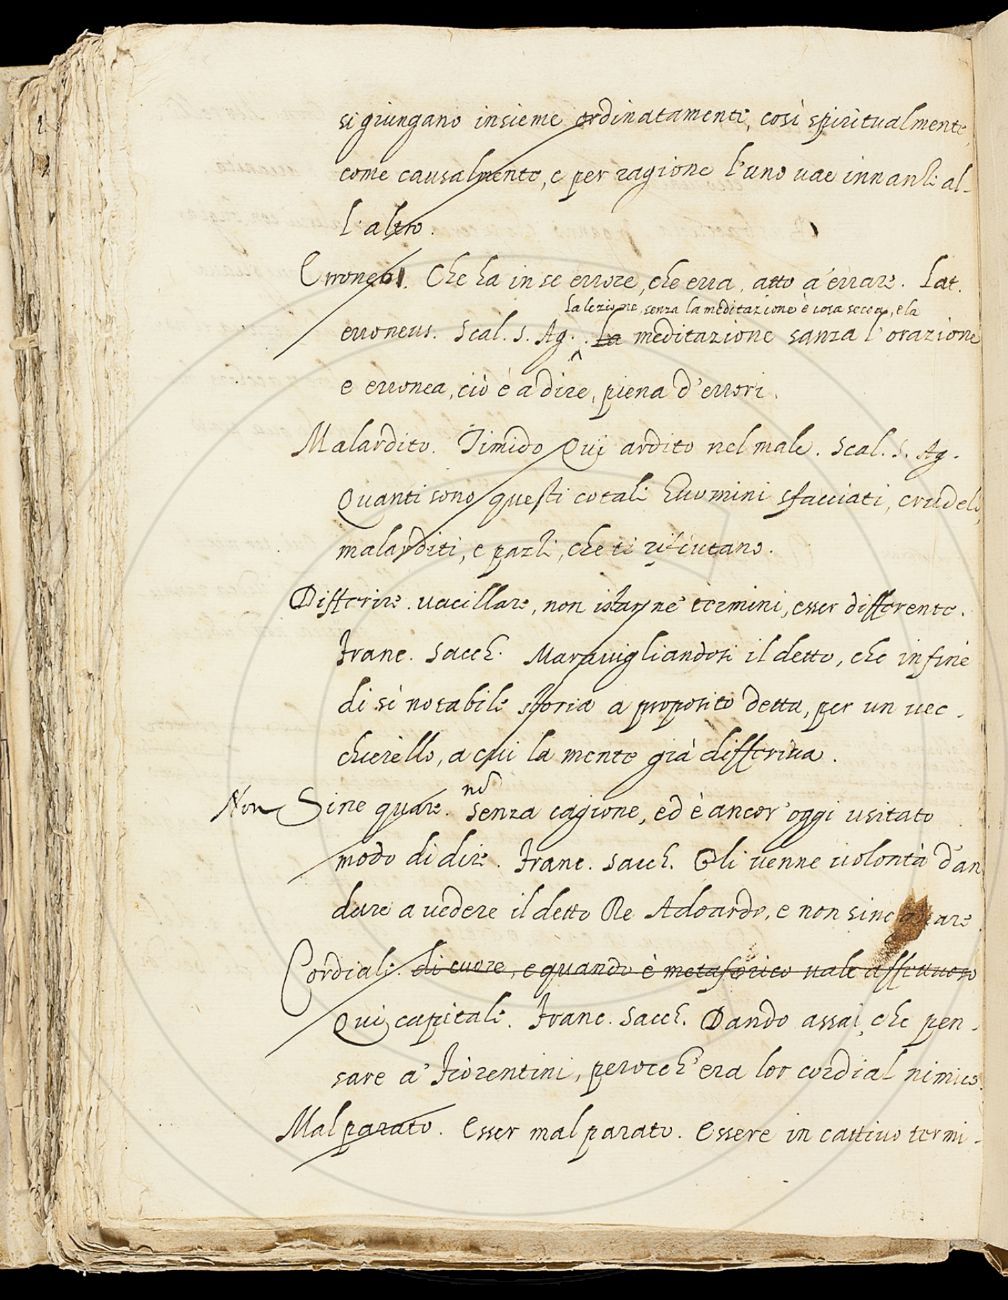 si giungano insieme ordinatamente, così spiritualmente,
come causalmente, e per ragione l'uno vae innanzi al-
l'altro.
Erroneo. Che ha in se errore, che erra, atto a errare. Lat.
La lezione, senza la meditazione è cosa secca, e la
erroneus. Scal. S. Ag. La meditazione sanza l'orazione
e erronea, ciò è a dire, piena d'errori.
Malardito. Timido Qui ardito nel male. Scal. S. Ag.
Quanti sono questi cotali huomini sfacciati, crudeli,
malarditi, e pazzi, che ti rifiutano.
Differire. vacillare, non istar ne' termini, esser differente.
Franc. Sacch. Maravigliandosi il detto, che infine
di sì notabile storia a proposito detta, per un vec-
chierello, a cui la mente già differiva.
Non Sine quare. nō Senza cagione, ed è ancor'oggi usitato
modo di dire. Franc. Sacch. Gli venne volontà d'an
dare a vedere il detto Re Adoardo, e non sine quare
Cordiale. di cuore, e quando è metaforico vale affettuoso
Qui capitale. Franc. Sacch. Dando assai, che pen-
sare a' Fiorentini, perocch'era lor cordial nimico.
Mal parato. Esser mal parato. Essere in cattivo termi-